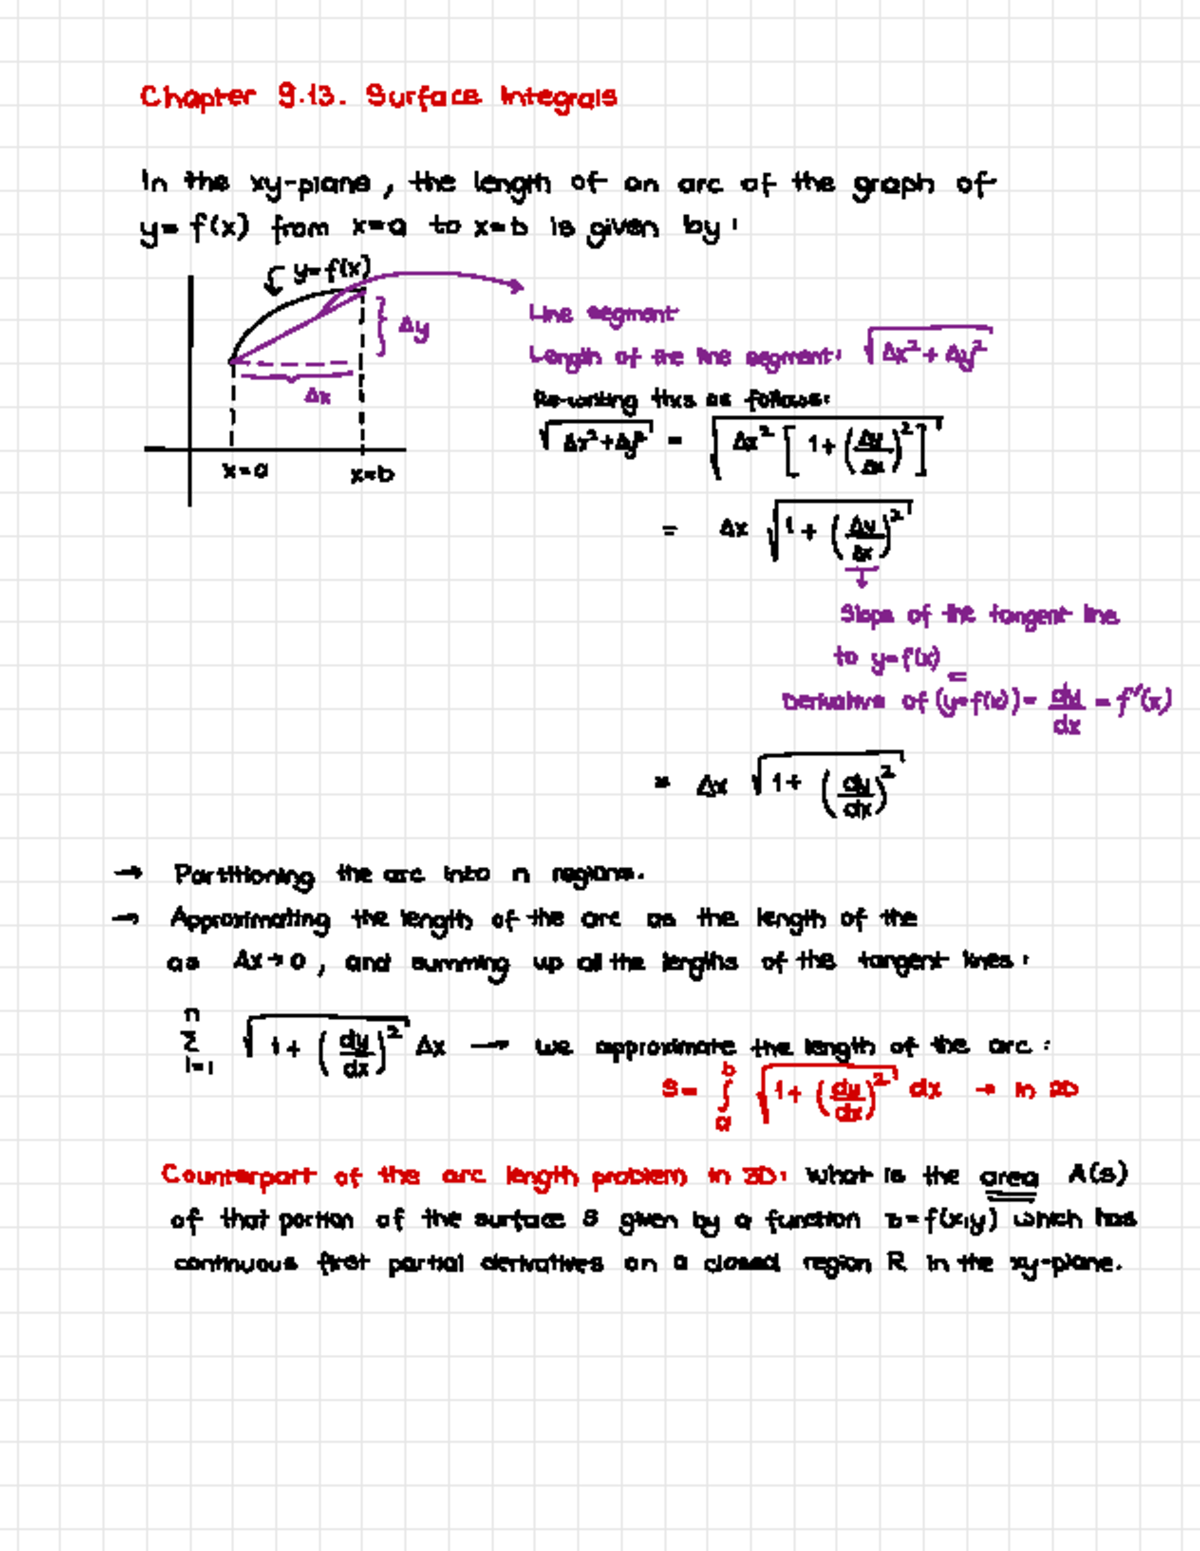 Chapter 9.13. Surface Integrals
In the xy-plane, the length of an arc of the graph of
y = f(x) from x=a to x=b is given by:
y=f(x)
Δy
Δx
x=a
x=b
Line segment
Length of the line segment: √(Δx² + Δy²)
Re-writing this as follows:
√(Δx²+Δy²) = √(Δx² [1+(Δy/Δx)²])
= Δx √(1+(Δy/Δx)²)
Slope of the tangent line
to y=f(x)
=
Derivative of (y=f(x)) = dy/dx = f'(x)
= Δx √(1+(dy/dx)²)
→ Partitioning the arc into n regions.
→ Approximating the length of the arc as the length of the
as Δx→0, and summing up all the lengths of the tangent lines:
n Σ i=1 √(1+(dy/dx)²) Δx → we approximate the length of the arc:
S = ∫ₐᵇ √(1+(dy/dx)²) dx → in 2D
Counterpart of the arc length problem in 3D: What is the area A(s)
of that portion of the surface S given by a function z=f(x,y) which has
continuous first partial derivatives on a closed region R in the xy-plane.